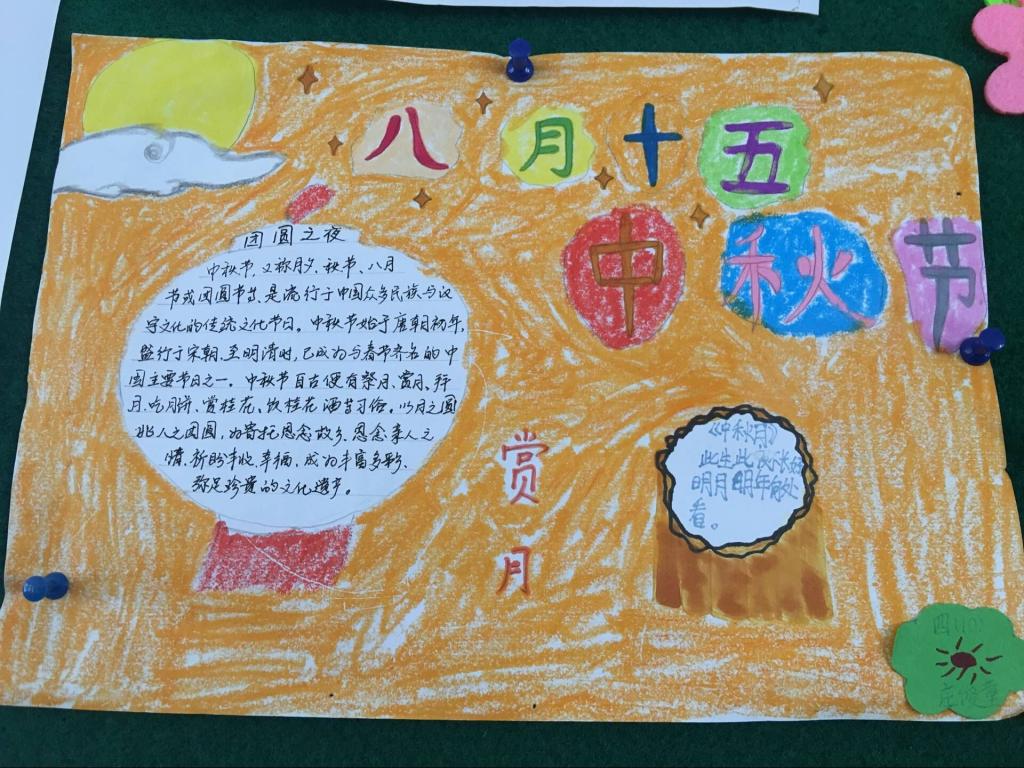 八月十五
中秋节
团圆之夜
中秋节,又称月夕、秋节、八月
节或团圆节等、是流行于中国众多民族与汉
字文化的传统文化节日。中秋节始于唐朝初年,
盛行于宋朝、至明清时,已成为与春节齐名的中
国主要节日之一。中秋节自古便有祭月、赏月、拜
月、吃月饼、赏桂花、饮桂花酒等习俗。以月之圆
兆人之团圆,为寄托思念故乡、思念亲人之
情、祈盼丰收、幸福、成为丰富多彩、
弥足珍贵的文化遗产。
赏月
《中秋月》
此生此夜不长好
明月明年何处
看。
四(10)